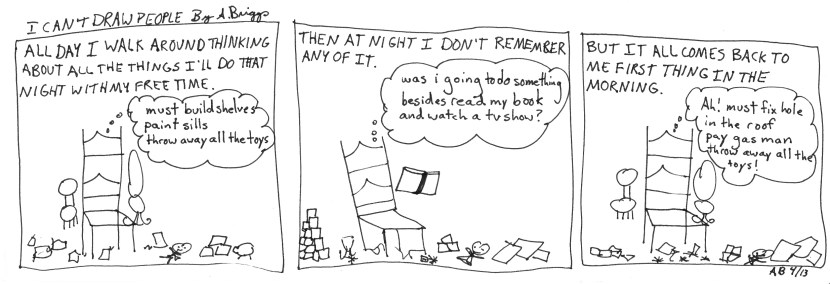 I CAN'T DRAW PEOPLE By A.Briggs
ALL DAY I WALK AROUND THINKING
ABOUT ALL THE THINGS I'LL DO THAT
NIGHT WITH MY FREE TIME.
must build shelves
paint sills
throw away all the toys
THEN AT NIGHT I DON'T REMEMBER
ANY OF IT.
was i going to do something
besides read my book
and watch a tv show?
BUT IT ALL COMES BACK TO
ME FIRST THING IN THE
MORNING.
Ah! must fix hole
in the roof
pay gas man
throw away all the
toys!
AB 4/13